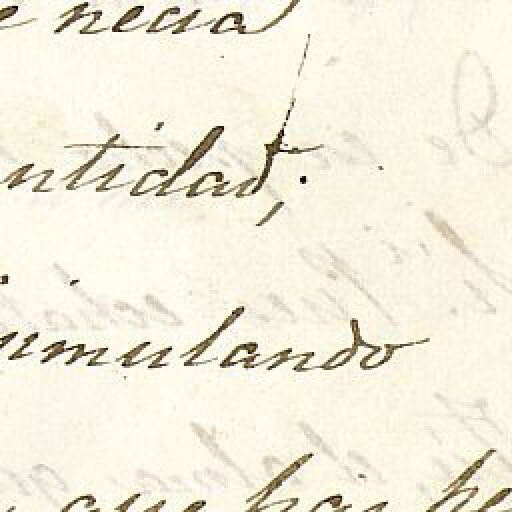 e necia
ntidad;
simulando
que hay he